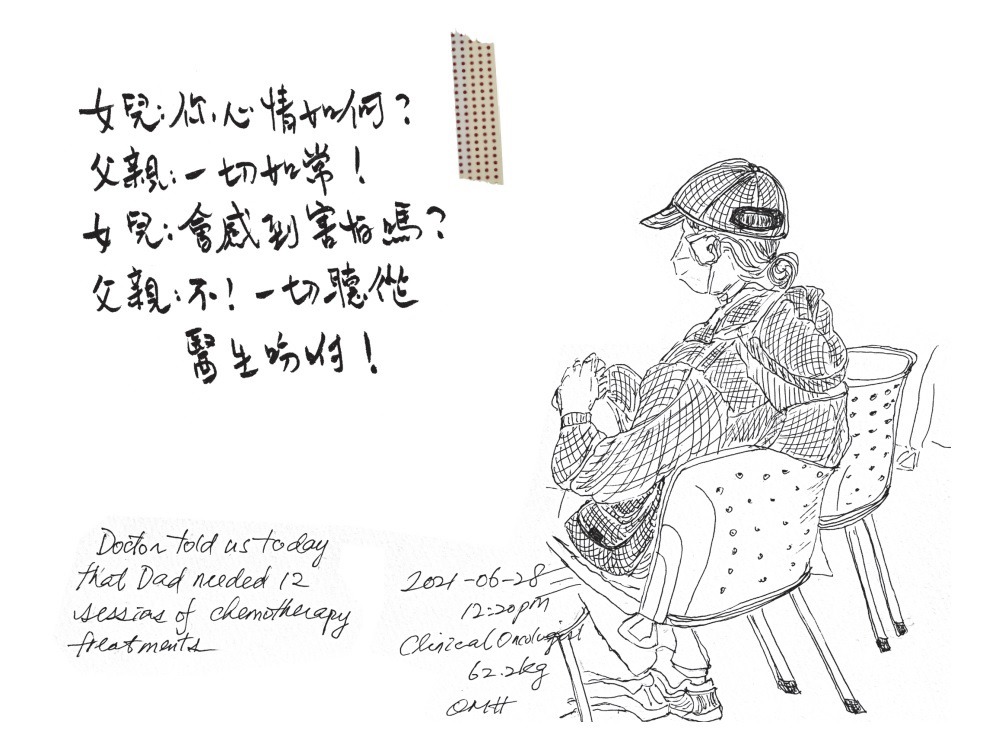 女兒:你心情如何?
父親:一切如常!
女兒:會感到害怕嗎?
父親:不!一切聽從
醫生吩咐!
Doctor told us today
that Dad needed 12
sessions of chemotherapy
treatments
2021-06-28
12:20pm
Clinical Oncologist
62.2kg
QMH